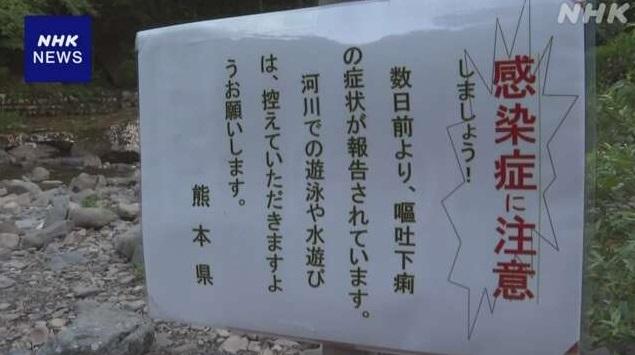 NHK
NEWS
NHK
感染症に注意
しましょう！
数日前より、嘔吐下痢
の症状が報告されています。
河川での遊泳や水遊び
は、控えていただきますよ
うお願いします。
熊本県